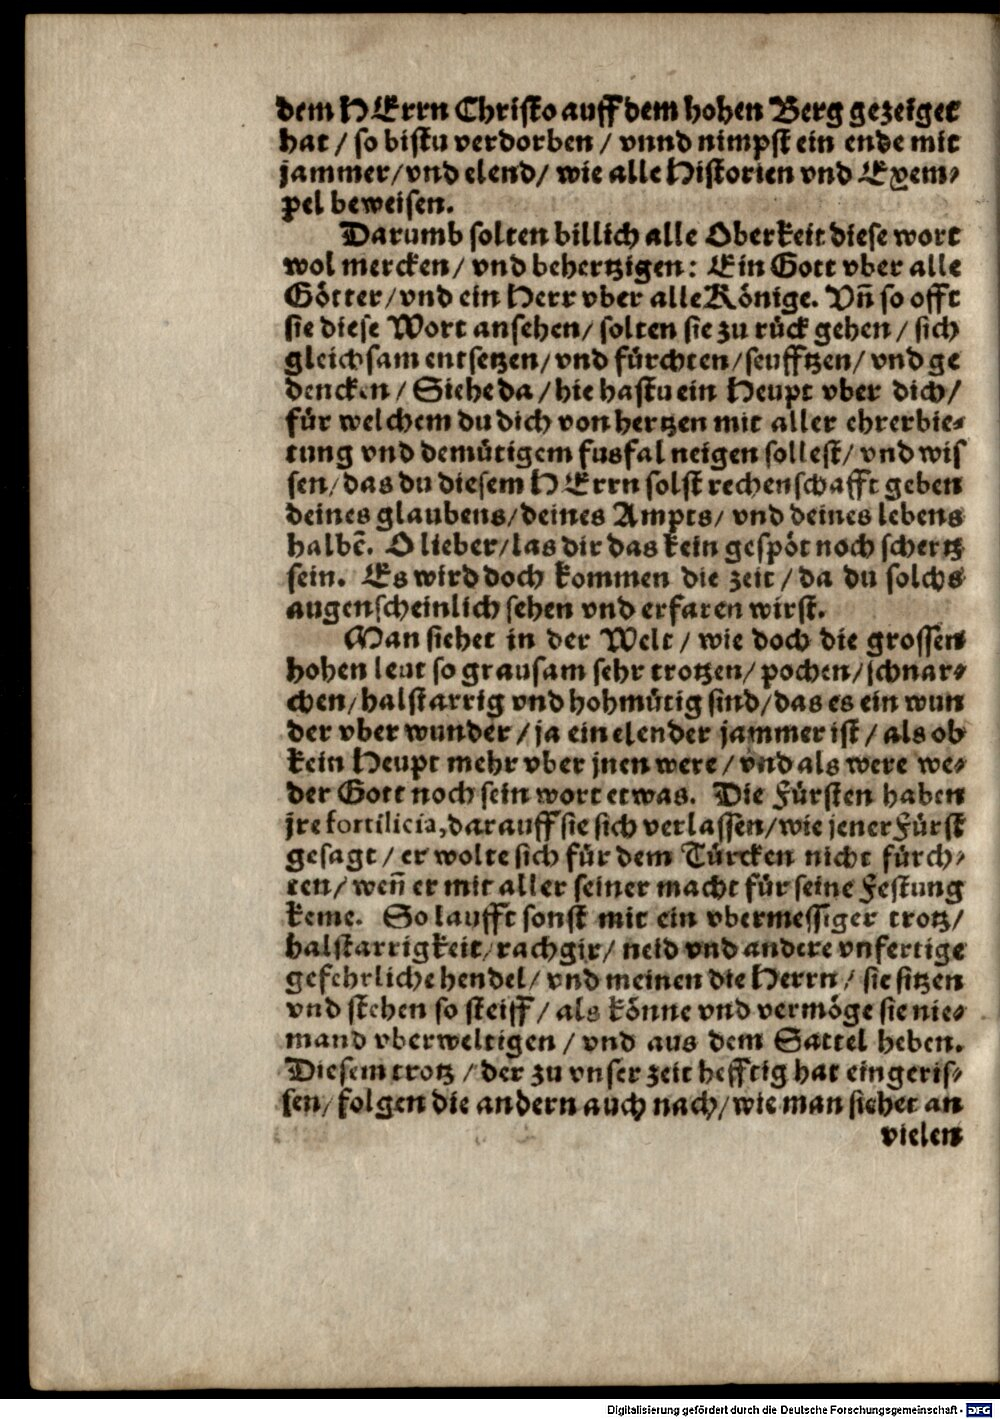 dem HErrn Christo auff dem hohen Berg gezeiget
hat / so bistu verdorben / vnnd nimpst ein ende mit
jammer / vnd elend / wie alle Historien vnd Exem-
pel beweisen.
Darumb solten billich alle Oberkeit diese wort
wol mercken / vnd behertzigen: Ein Gott vber alle
Götter / vnd ein Herr vber alle Könige. Vñ so offt
sie diese Wort ansehen / solten sie zu rück gehen / sich
gleichsam entsetzen / vnd fürchten / seufftzen / vnd ge
dencken / Siehe da / hie hastu ein Heupt vber dich /
für welchem du dich von hertzen mit aller ehrerbie-
tung vnd demütigem fusfal neigen sollest / vnd wis
sen / das du diesem HErrn solst rechenschafft geben
deines glaubens / deines Ampts / vnd deines lebens
halbē. O lieber / las dir das kein gespöt noch schertz
sein. Es wird doch kommen die zeit / da du solchs
augenscheinlich sehen vnd erfaren wirst.
Man siehet in der Welt / wie doch die grossen
hohen leut so grausam sehr trotzen / pochen / schnar-
chen / halstarrig vnd hohmütig sind / das es ein wun
der vber wunder / ja ein elender jammer ist / als ob
kein Heupt mehr vber jnen were / vnd als were we-
der Gott noch sein wort etwas. Die Fürsten haben
jre fortilicia, darauff sie sich verlassen / wie jener Fürst
gesagt / er wolte sich für dem Türcken nicht fürch-
ten / weñ er mit aller seiner macht für seine Festung
keme. So laufft sonst mit ein vbermessiger trotz /
halstarrigkeit / rachgir / neid vnd andere vnfertige
gefehrliche hendel / vnd meinen die Herrn / sie sitzen
vnd stehen so steiff / als könne vnd vermöge sie nie-
mand vberweltigen / vnd aus dem Sattel heben.
Diesem trotz / der zu vnser zeit hefftig hat eingeris-
sen / folgen die andern auch nach / wie man siehet an
vielen
Digitalisierung gefördert durch die Deutsche Forschungsgemeinschaft - DFG